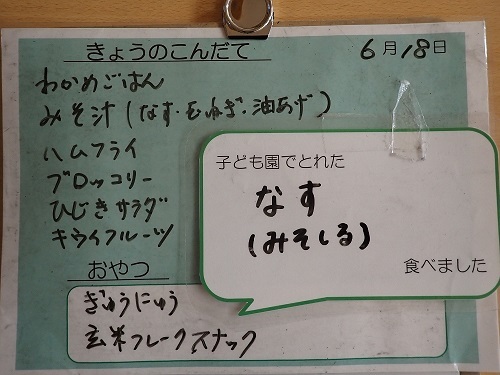 きょうのこんだて
6月18日
わかめごはん
みそ汁(なす・玉ねぎ・油あげ)
ハムフライ
ブロッコリー
ひじきサラダ
キウイフルーツ
子ども園でとれた
なす
(みそしる)
食べました
おやつ
ぎゅうにゅう
玄米フレークスナック